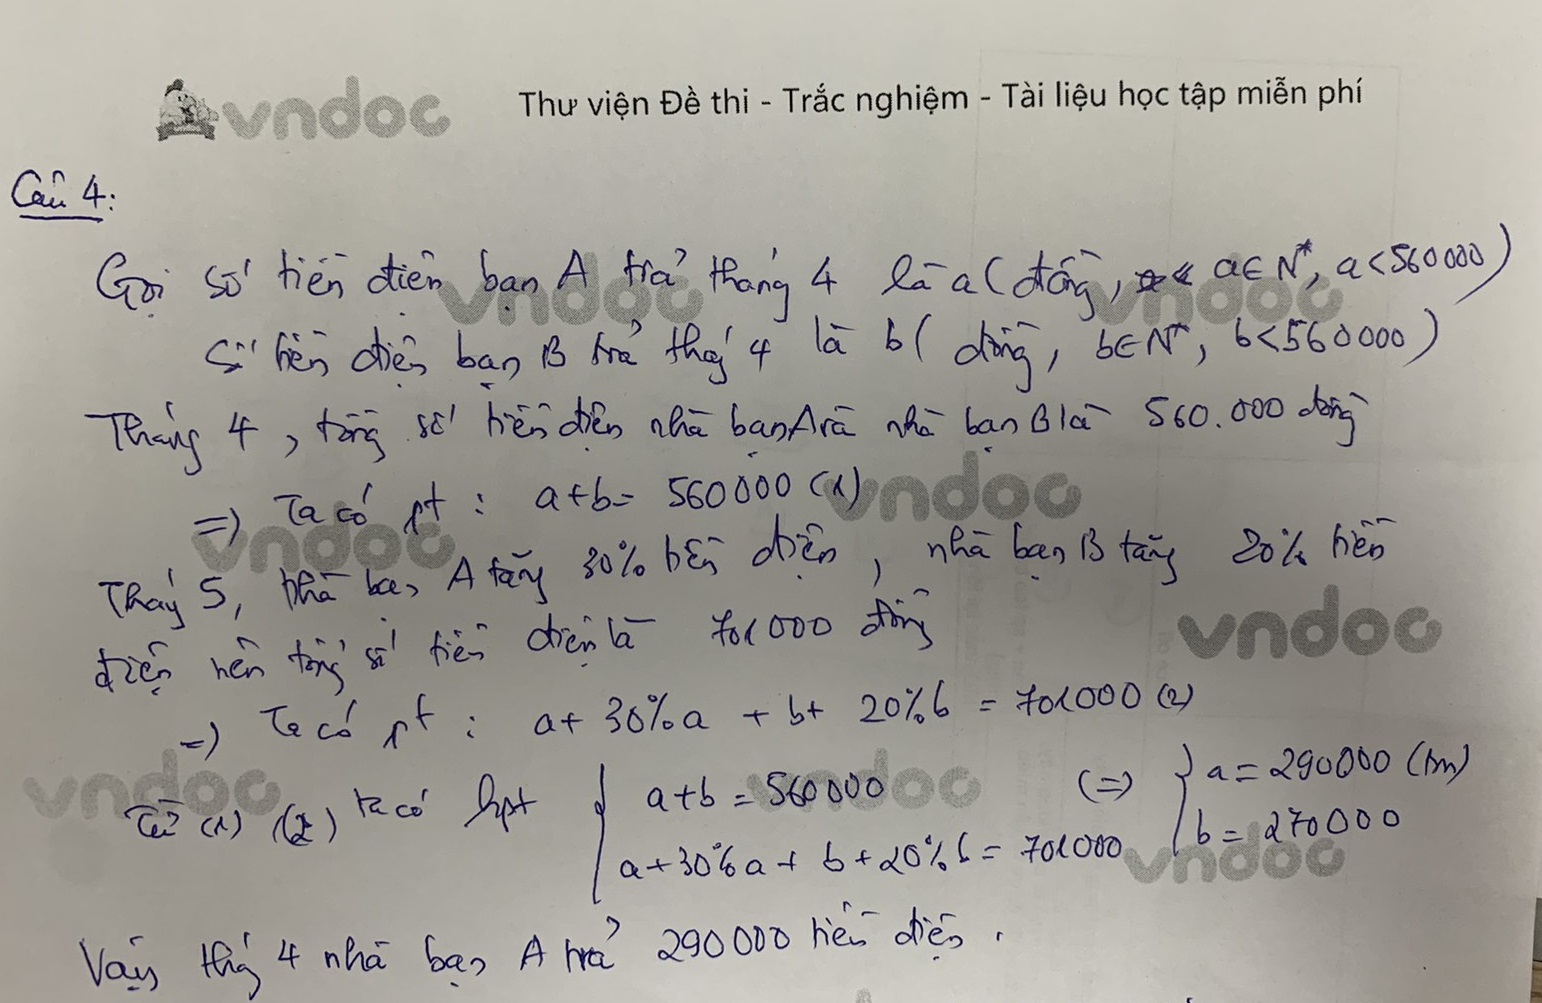 vndoc Thư viện Đề thi - Trắc nghiệm - Tài liệu học tập miễn phí
Câu 4:
Gọi số tiền điện bạn A trả tháng 4 là a (đồng, a∈N*, a<560000)
Số tiền điện bạn B trả tháng 4 là b (đồng, b∈N*, b<560000)
Tháng 4, tổng số tiền điện nhà bạn A và nhà bạn B là 560.000 đồng
=) Ta có pt : a+b= 560000 (1)
Tháng 5, nhà bạn A tăng 30% tiền điện, nhà bạn B tăng 20% tiền
điện nên tổng số tiền điện là 701000 đồng
=) Ta có pt : a+ 30%a + b+ 20%b = 701000 (2)
Từ (1) (2) ta có hpt { a+b = 560000 (=) { a = 290000 (tm)
a+30%a + b+20%b = 701000 b = 270000
Vậy tháng 4 nhà bạn A trả 290000 tiền điện.
vndoc
vndoc
vndoc
vndoc
vndoc
vndoc
vndoc
vndoc